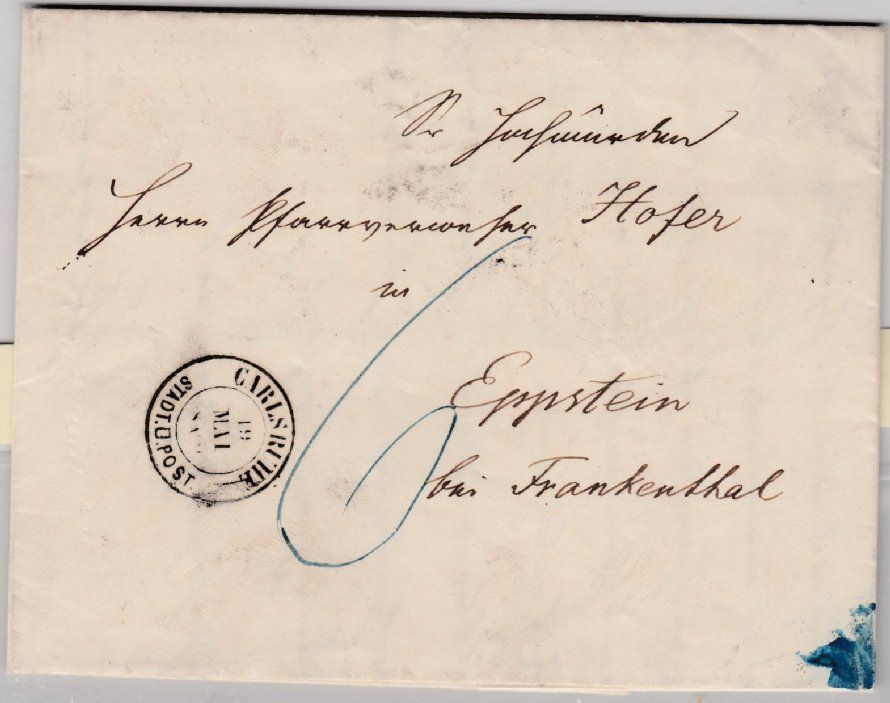 Sr Hochwürden
Herrn Pfarrverweser Hofer
in
Eppstein
bei Frankenthal
6
CARLSRUHE
19
MAI
STADT.U.POST